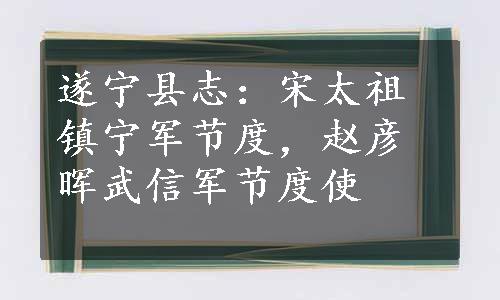 遂宁县志：宋太祖
镇宁军节度，赵彦
晖武信军节度使